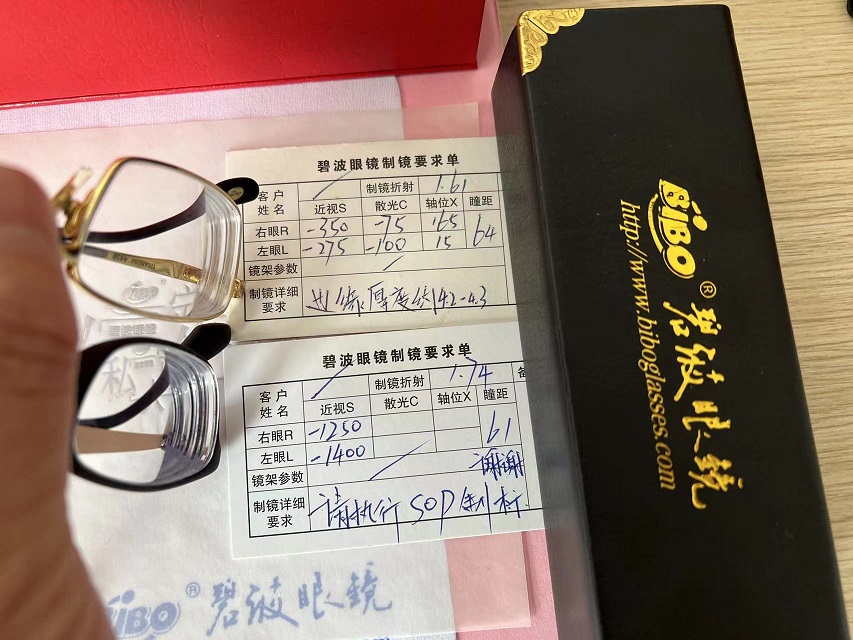 碧波眼镜制镜要求单
客户姓名 制镜折射 1.61
近视S 散光C 轴位X 瞳距
右眼R -350 -75 165 64
左眼L -275 -100 15
镜架参数
制镜详细要求 边缘厚度 42-43
碧波眼镜制镜要求单
客户姓名 制镜折射 1.74
近视S 散光C 轴位X 瞳距
右眼R -1250 61
左眼L -1400
镜架参数 谢谢
制镜详细要求 请执行SOP制标
BiBO® 碧波眼镜
http://www.biboglasses.com
BiBO® 碧波眼鏡
碧波眼镜
松